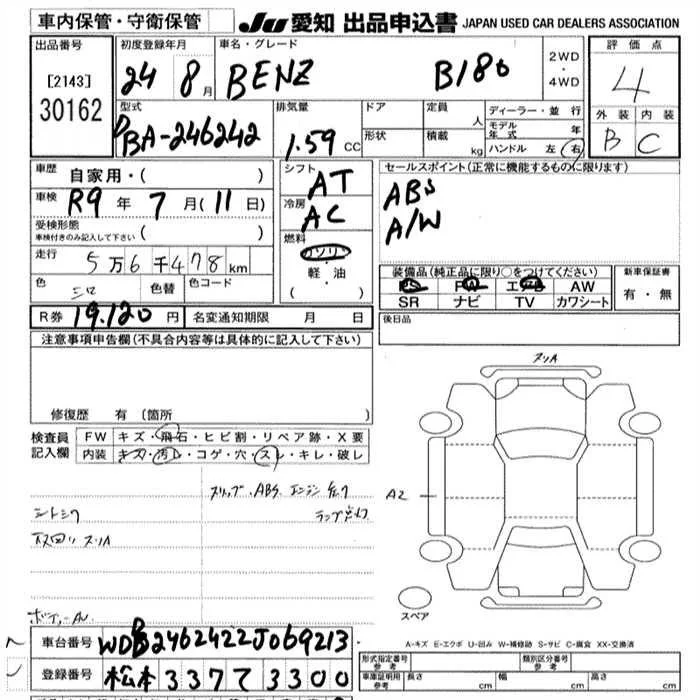 車内保管・守衛保管 JU 愛知 出品申込書 JAPAN USED CAR DEALERS ASSOCIATION
出品番号 [2143] 30162
初度登録年月 24 8月
車名・グレード BENZ B180
2WD・4WD
評価点 4
外装 内装 B C
型式 DBA-246242
排気量 1.59 CC
ドア 定員 人
形状 積載 kg
ディーラー・並行
モデル年式 年
ハンドル 左 右
車歴 自家用・( )
車検 R9年 7月(11日)
受検形態 車検付きのみ記入して下さい ( )
走行 5万6千478km
色 シロ 色替 色コード
R券 19,120円 名変通知期限 月 日
シフト AT
冷房 AC
燃料 ガソリン・軽・油・( )
セールスポイント(正常に機能するものに限ります)
ABS
A/W
装備品(純正品に限り○をつけてください) 新車保証書
PS PW エアB AW 有・無
SR ナビ TV カワシート
後日品
注意事項申告欄(不具合内容等は具体的に記入して下さい)
修復歴 有 〔箇所
検査員記入欄 FW キズ・飛石・ヒビ割・リペア跡・X要
内装 キズ・汚レ・コゲ・穴・スレ・キレ・破レ
スリップ・ABS・エンジン
シートシワ ランプ点灯
スリA
スリA
A2
スペア
A-キズ E-エクボ U-凹み W-補修跡 S-サビ C-腐食 XX-交換済
車台番号 WDB2462422J069213
登録番号 松本 337 て 3300
形式指定番号 参考 類別区分番号 参考
車庫証明用 参考 長さ cm 幅 cm 高さ cm